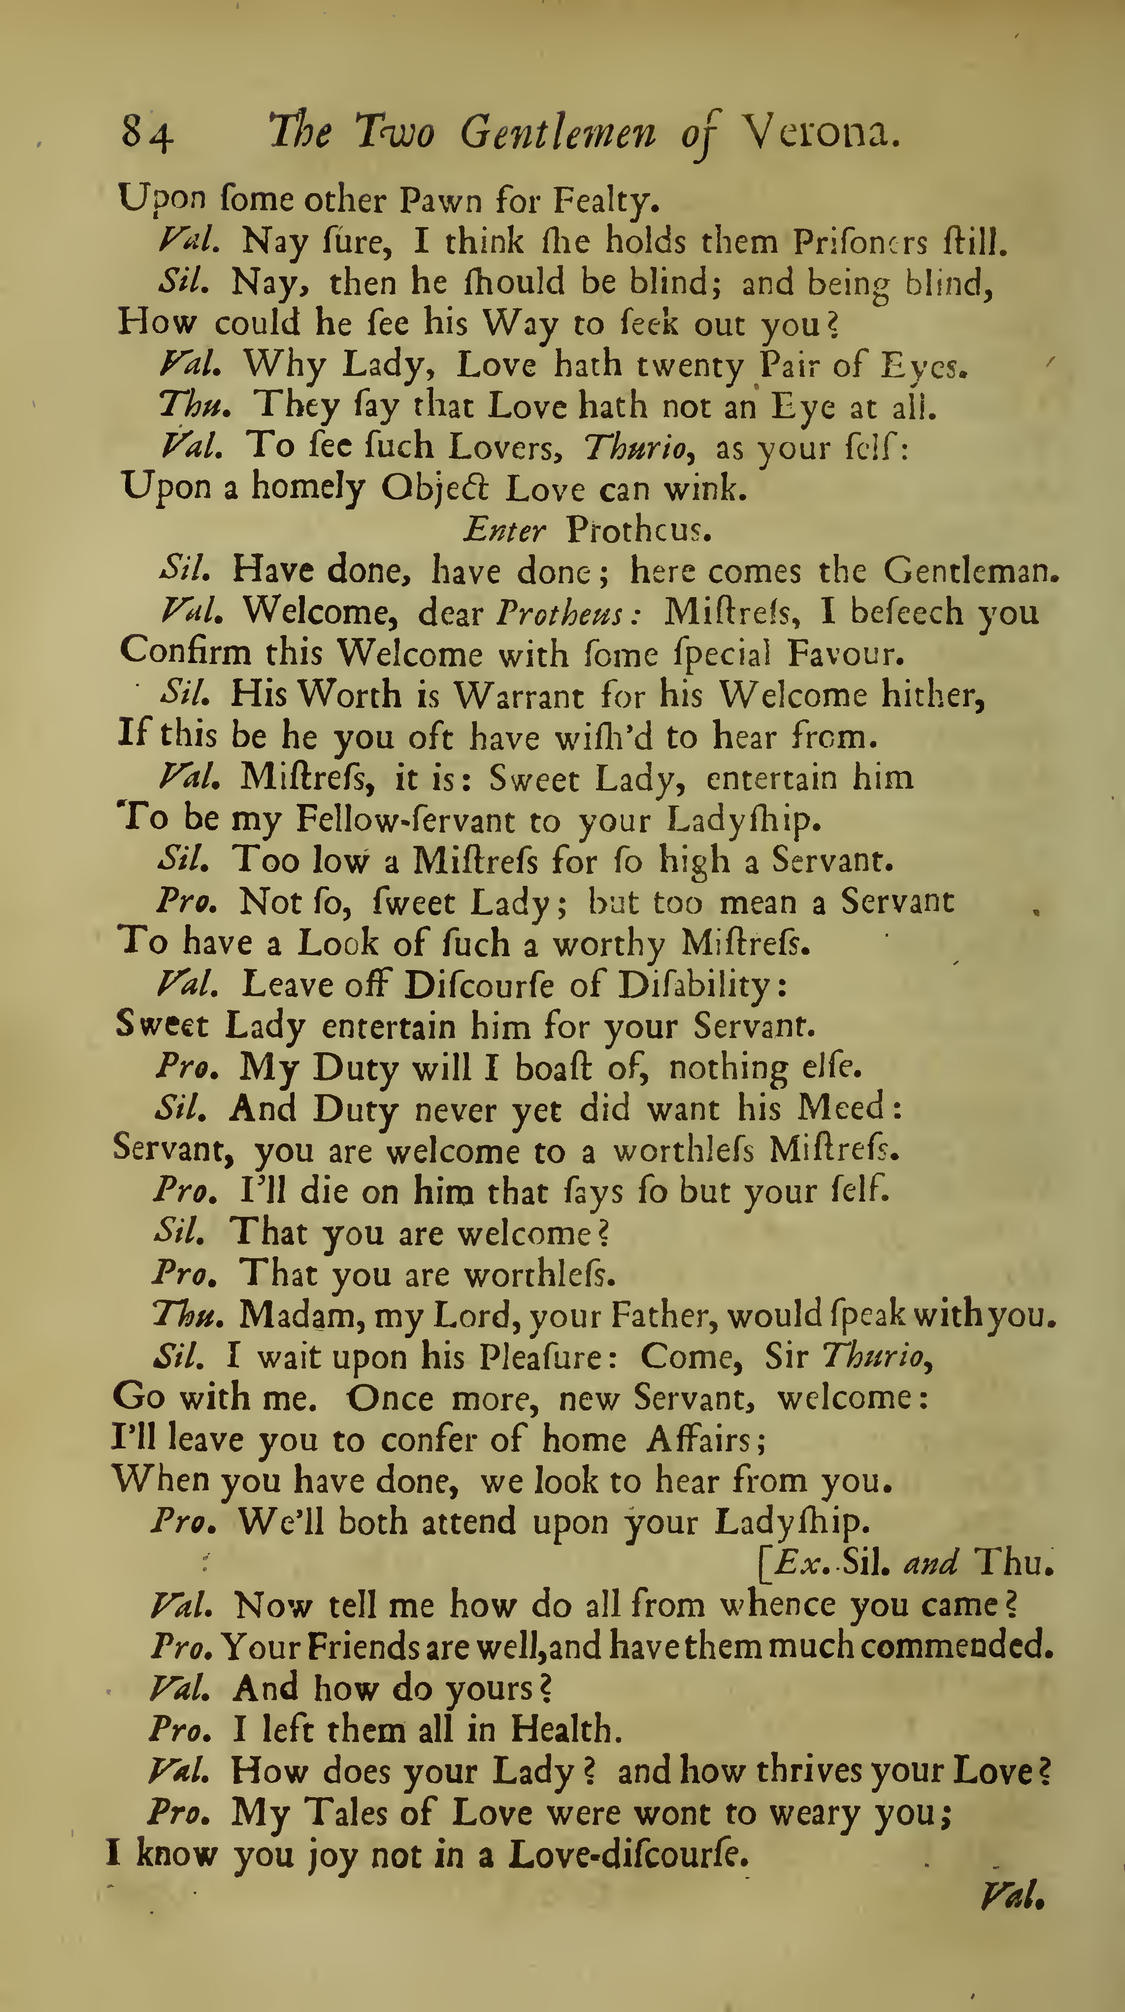 84 The Two Gentlemen of Verona.
Upon ſome other Pawn for Fealty.
Val. Nay ſure, I think ſhe holds them Priſoners ſtill.
Sil. Nay, then he ſhould be blind; and being blind,
How could he ſee his Way to ſeek out you?
Val. Why Lady, Love hath twenty Pair of Eyes.
Thu. They ſay that Love hath not an Eye at all.
Val. To ſee ſuch Lovers, Thurio, as your ſelf:
Upon a homely Object Love can wink.
Enter Protheus.
Sil. Have done, have done; here comes the Gentleman.
Val. Welcome, dear Protheus: Miſtreſs, I beſeech you
Confirm this Welcome with ſome ſpecial Favour.
Sil. His Worth is Warrant for his Welcome hither,
If this be he you oft have wiſh'd to hear from.
Val. Miſtreſs, it is: Sweet Lady, entertain him
To be my Fellow-ſervant to your Ladyſhip.
Sil. Too low a Miſtreſs for ſo high a Servant.
Pro. Not ſo, ſweet Lady; but too mean a Servant
To have a Look of ſuch a worthy Miſtreſs.
Val. Leave off Diſcourſe of Diſability:
Sweet Lady entertain him for your Servant.
Pro. My Duty will I boaſt of, nothing elſe.
Sil. And Duty never yet did want his Meed:
Servant, you are welcome to a worthleſs Miſtreſs.
Pro. I'll die on him that ſays ſo but your ſelf.
Sil. That you are welcome?
Pro. That you are worthleſs.
Thu. Madam, my Lord, your Father, would ſpeak with you.
Sil. I wait upon his Pleaſure: Come, Sir Thurio,
Go with me. Once more, new Servant, welcome:
I'll leave you to confer of home Affairs;
When you have done, we look to hear from you.
Pro. We'll both attend upon your Ladyſhip.
[Ex. Sil. and Thu.
Val. Now tell me how do all from whence you came?
Pro. Your Friends are well, and have them much commended.
Val. And how do yours?
Pro. I left them all in Health.
Val. How does your Lady? and how thrives your Love?
Pro. My Tales of Love were wont to weary you;
I know you joy not in a Love-diſcourſe.
Val.